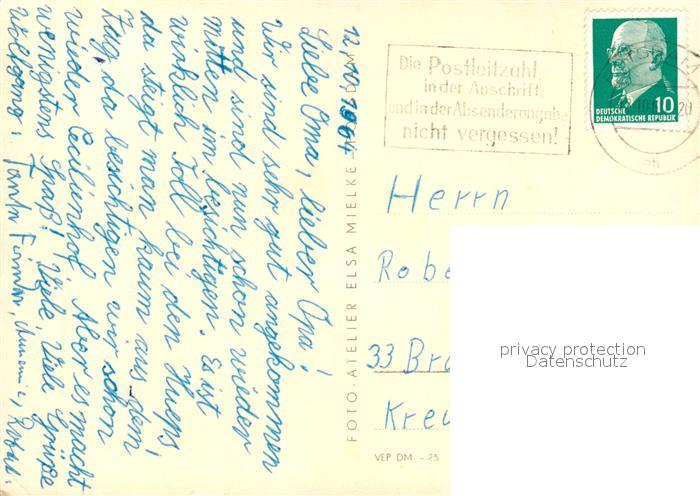 12.10.1964
Liebe Oma, lieber Opa!
Wir sind sehr gut angekommen
und sind nun schon wieder
mitten im besichtigen. Es ist
wirklich toll bei den
da steigt man kaum aus dem
Zug, da besichtigen wir schon
wieder Cecilienhof. Aber es macht
wenigstens Spaß! Viele, viele Grüße
Wolfgang,
FOTO-ATELIER ELSA MIELKE
Die Postleitzahl
in der Anschrift
und in der Absenderangabe
nicht vergessen!
DEUTSCHE
DEMOKRATISCHE REPUBLIK
10
Herrn
Robe
33 Br
Kreu
VEP DM - 25
privacy protection
Datenschutz